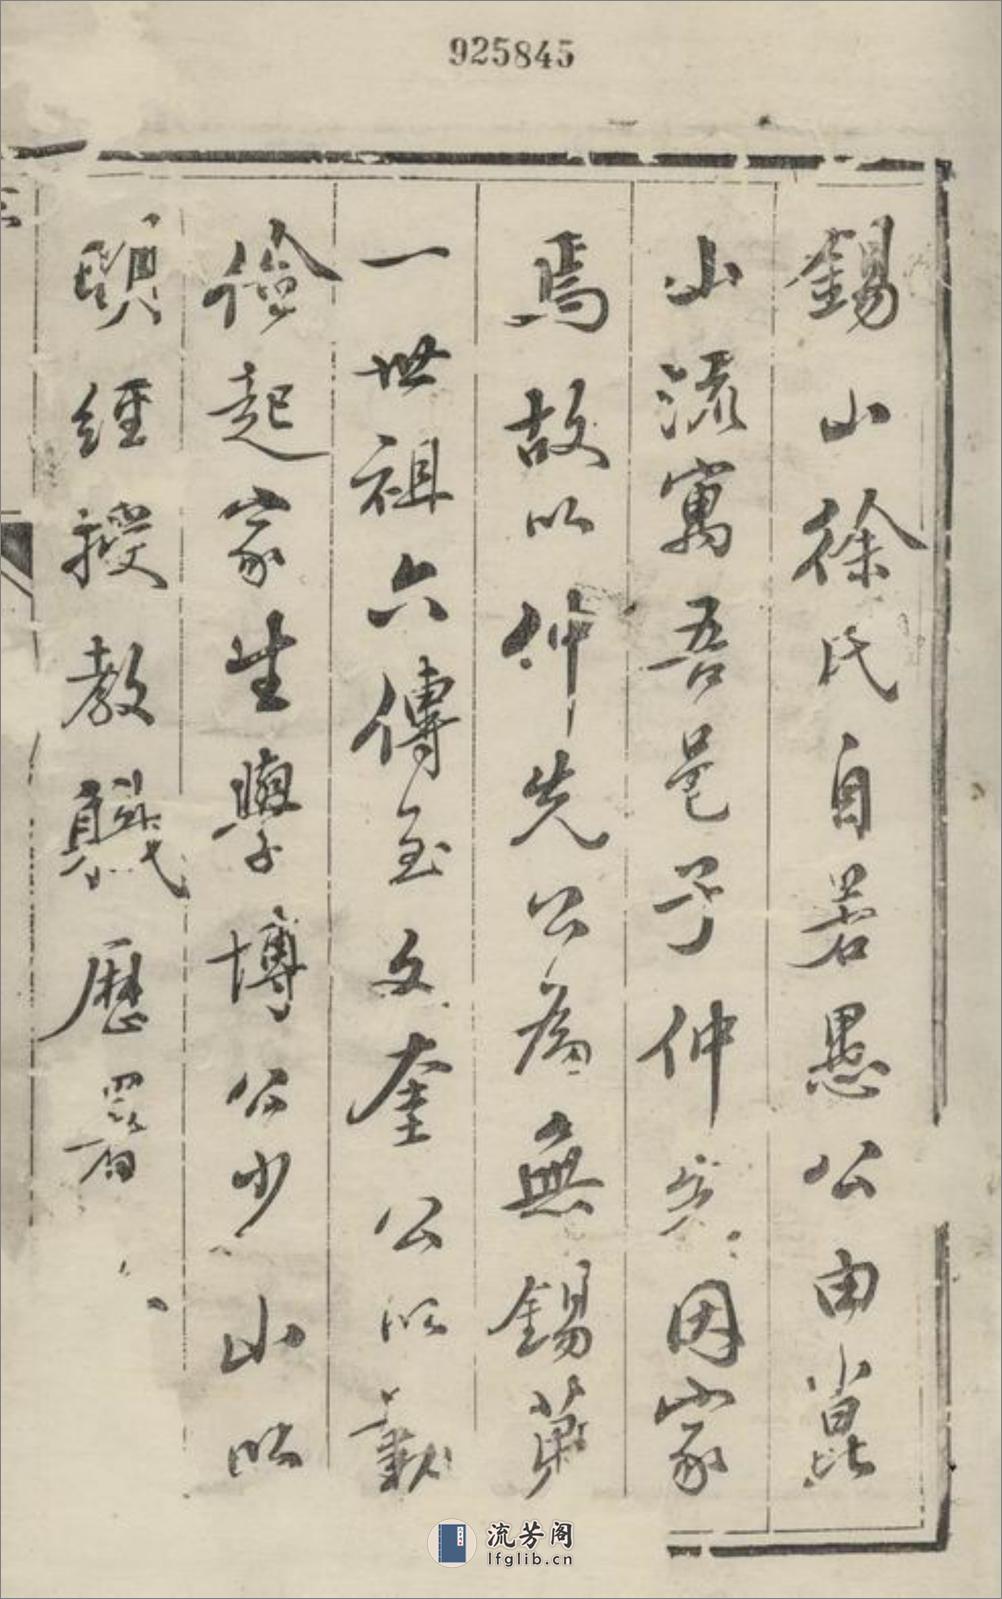 925845
錫山徐氏自若愚公由崑
山流寓吾邑子仲先因家
焉故以仲先公為無錫第
一世祖六傳至文奎公以勤
儉起家生學博公少山以
明經授教職歷署
流芳阁
lfglib.cn